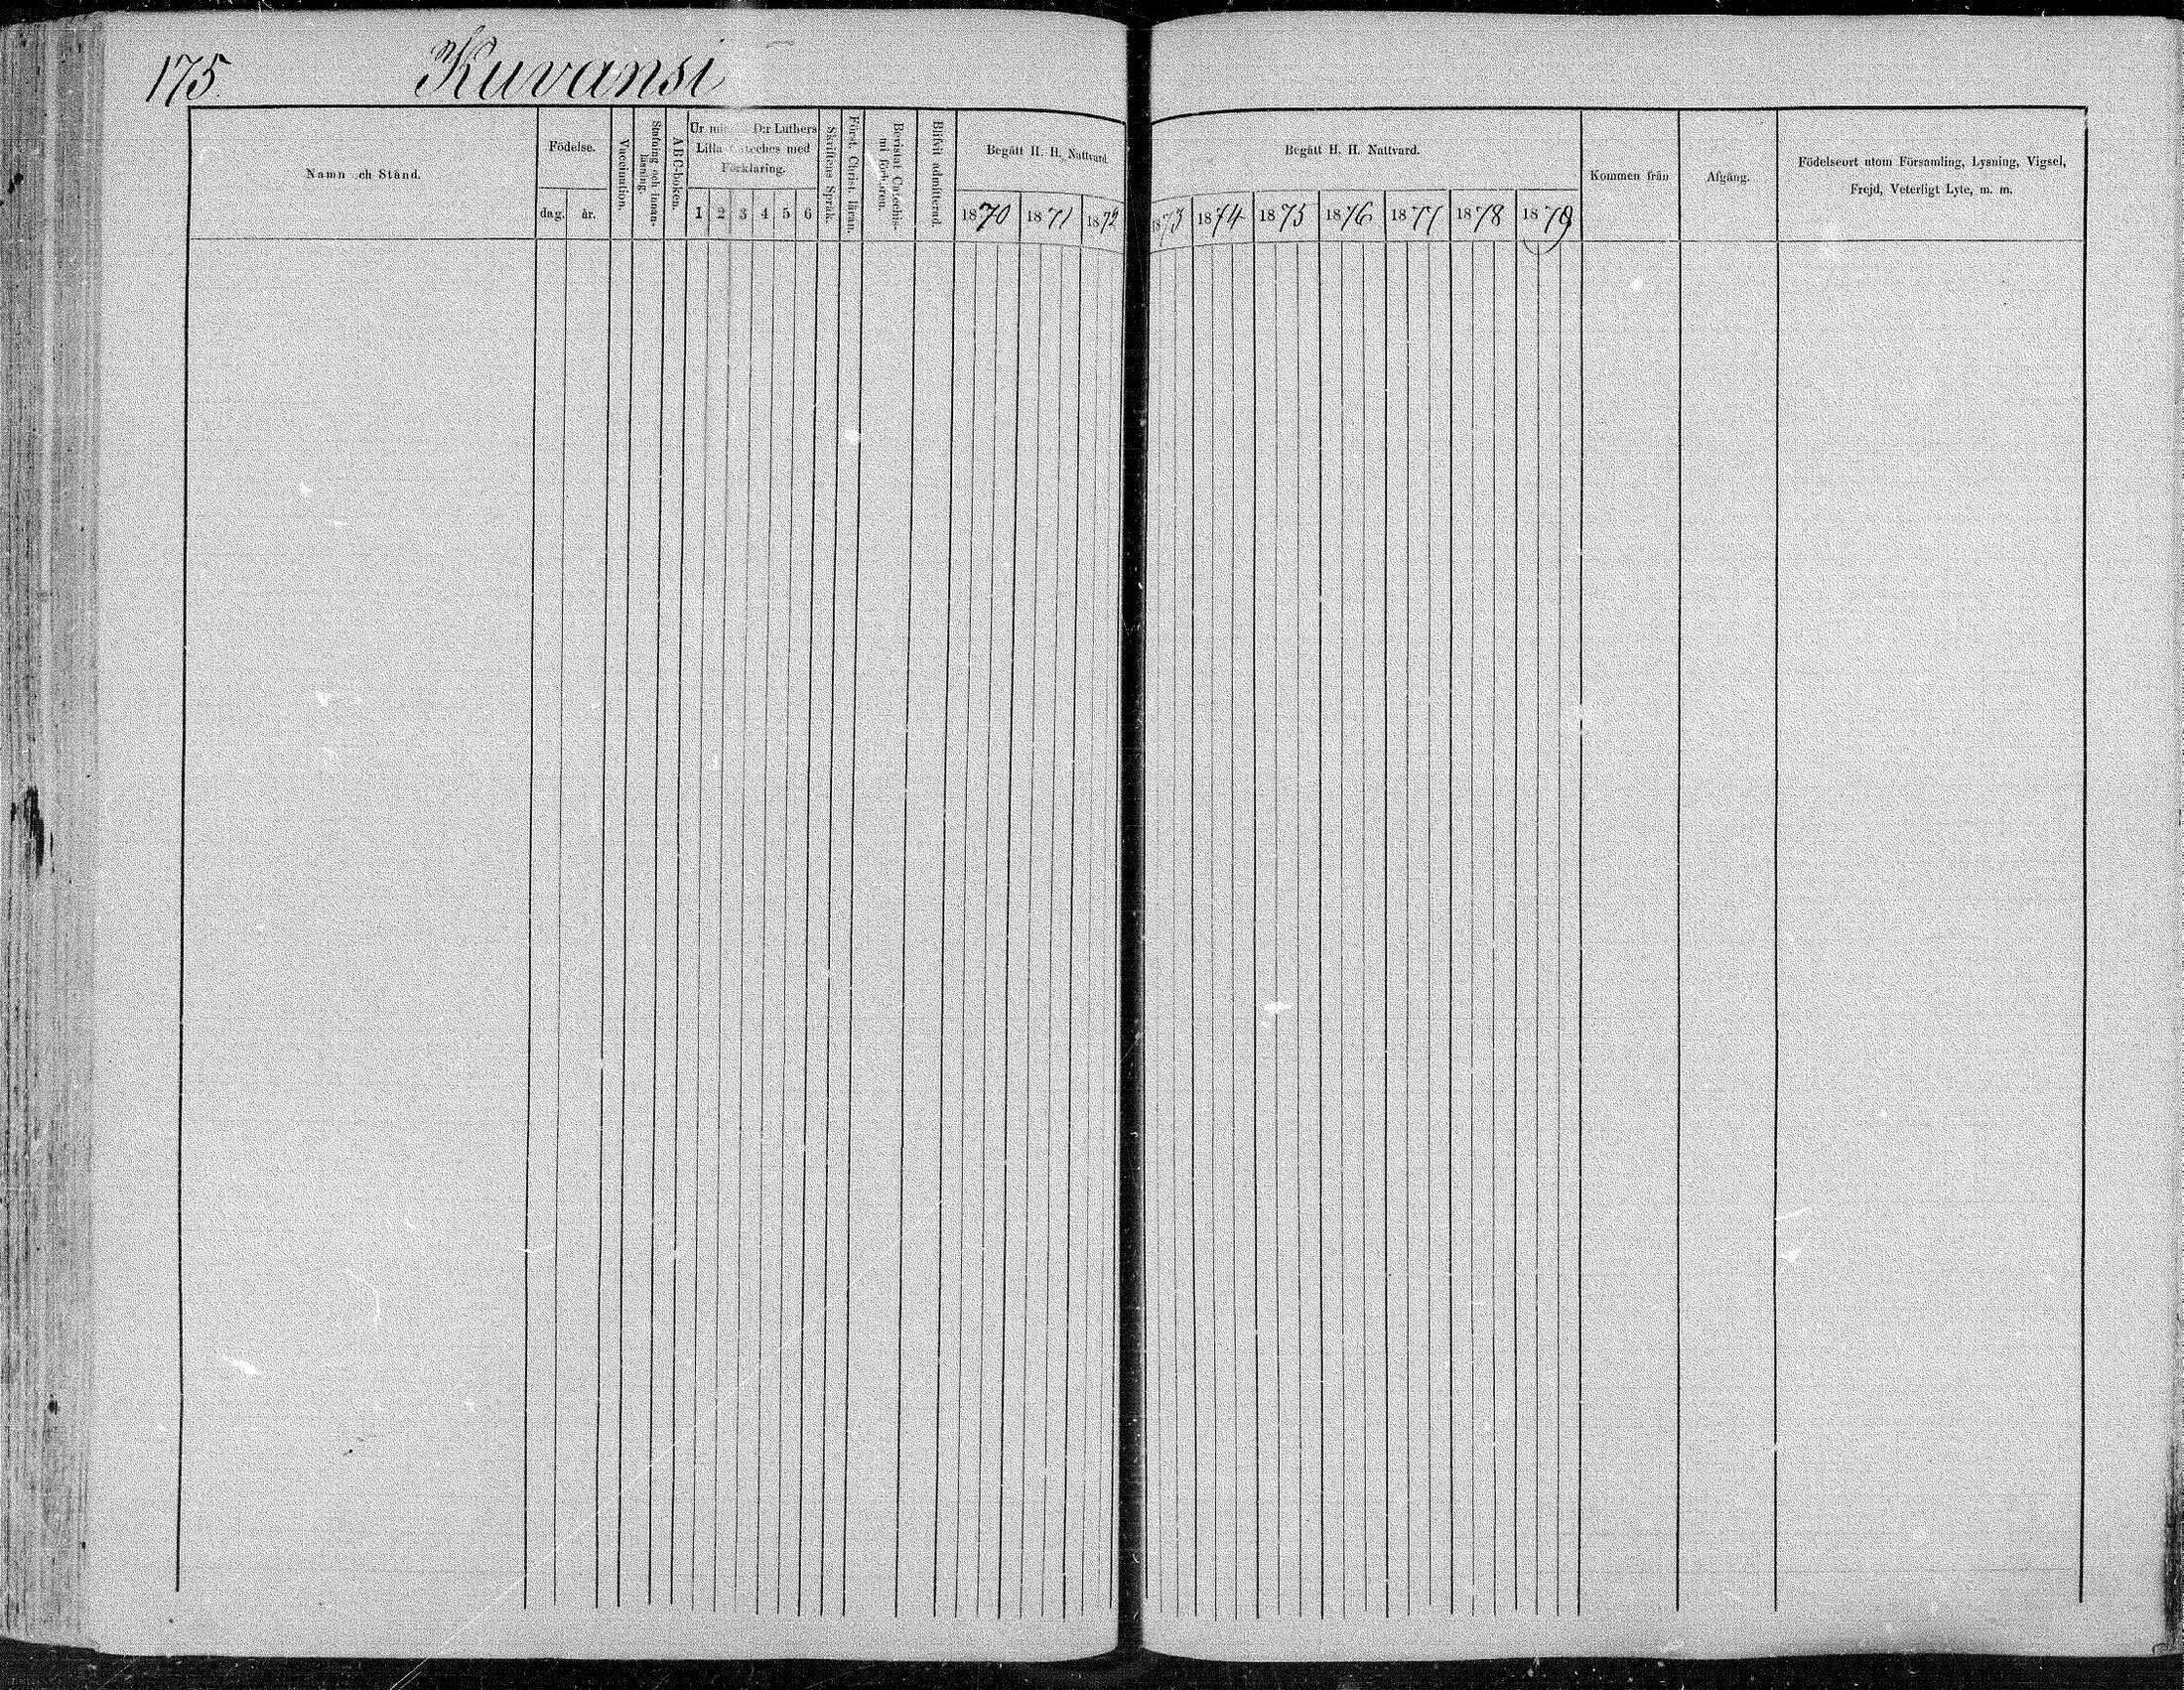 175. Kuvansi
Namn och Stånd.
Födelse.
dag. år.
Vaccination.
Stafning och innan-
läsning.
ABC-boken.
Ur min D:r Luthers
Lilla Cateches med
Förklaring.
1 2 3 4 5 6
Skriftens Språk.
Först. Christ. läran.
Bevistat Catechis-
mi förhören.
Blifvit admitterad.
Begått H. H. Nattvard.
1870 1871 1872
Begått H. H. Nattvard.
1873 1874 1875 1876 1877 1878 1879
Kommen från
Afgång.
Födelseort utom Församling, Lysning, Vigsel,
Frejd, Veterligt Lyte, m. m.